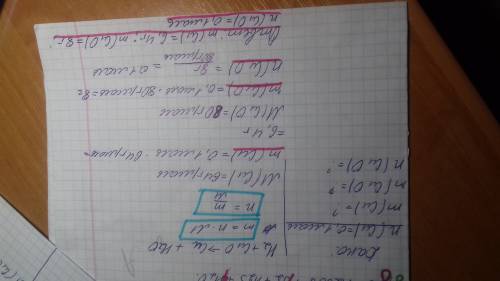 Дано:
n(Cu)=0,1 моль
m(Cu)=?
m(CuO)=?
n(CuO)=?
H2+CuO→Cu+H2O
m=n·M
n=m/M
M(Cu)=64г/моль
m(Cu)=0,1моль·64г/моль=
=6,4г
M(CuO)=80г/моль
m(CuO)=0,1моль·80г/моль=8г
n(CuO)=8г/80г/моль=0,1моль
Ответ: m(Cu)=6,4г; m(CuO)=8г;
n(CuO)=0,1моль